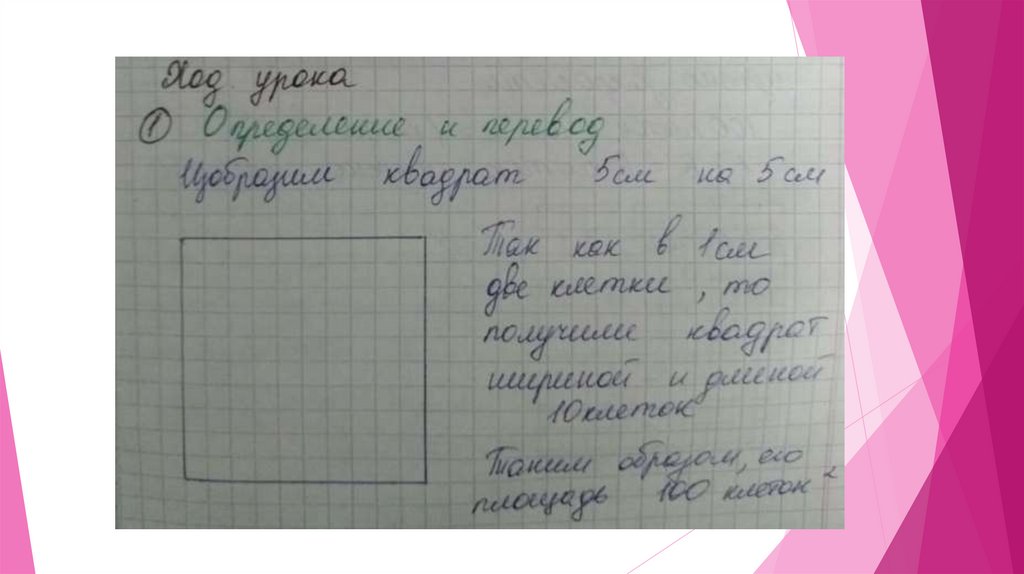 Ход урока
① Определение и перевод
Изобразим квадрат 5см на 5см
Так как в 1см
две клетки, то
получили квадрат
шириной и длиной
10 клеток
Таким образом, его
площадь 100 клеток²